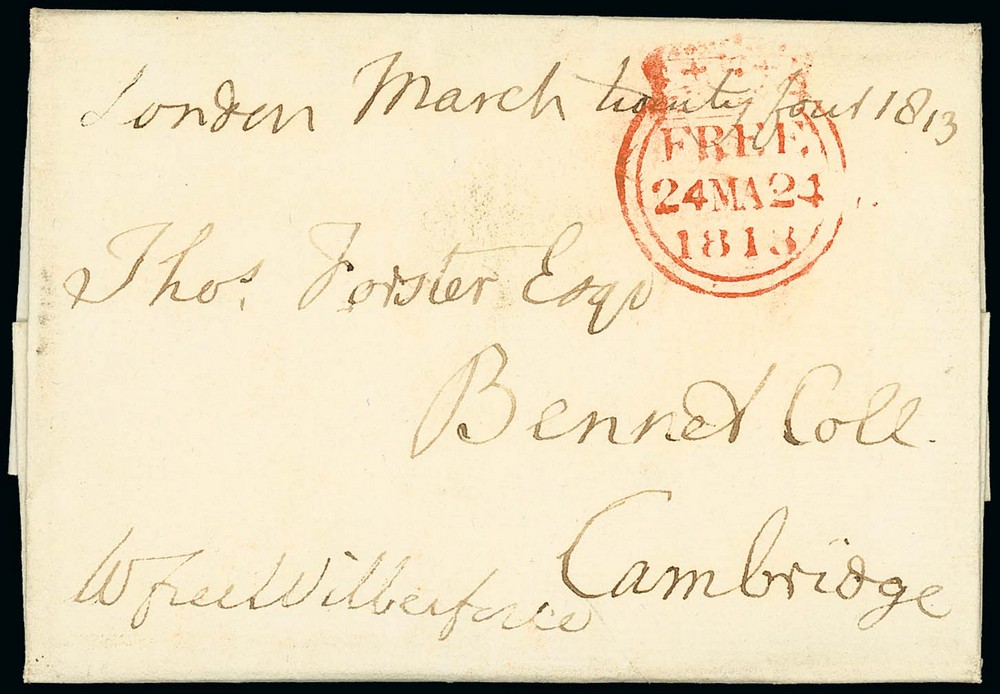 London March twenty four 1813
FREE
24 MA 24
1813
Thos. Forster Esqr
Bennet Coll.
Cambridge
W free Wilberforce